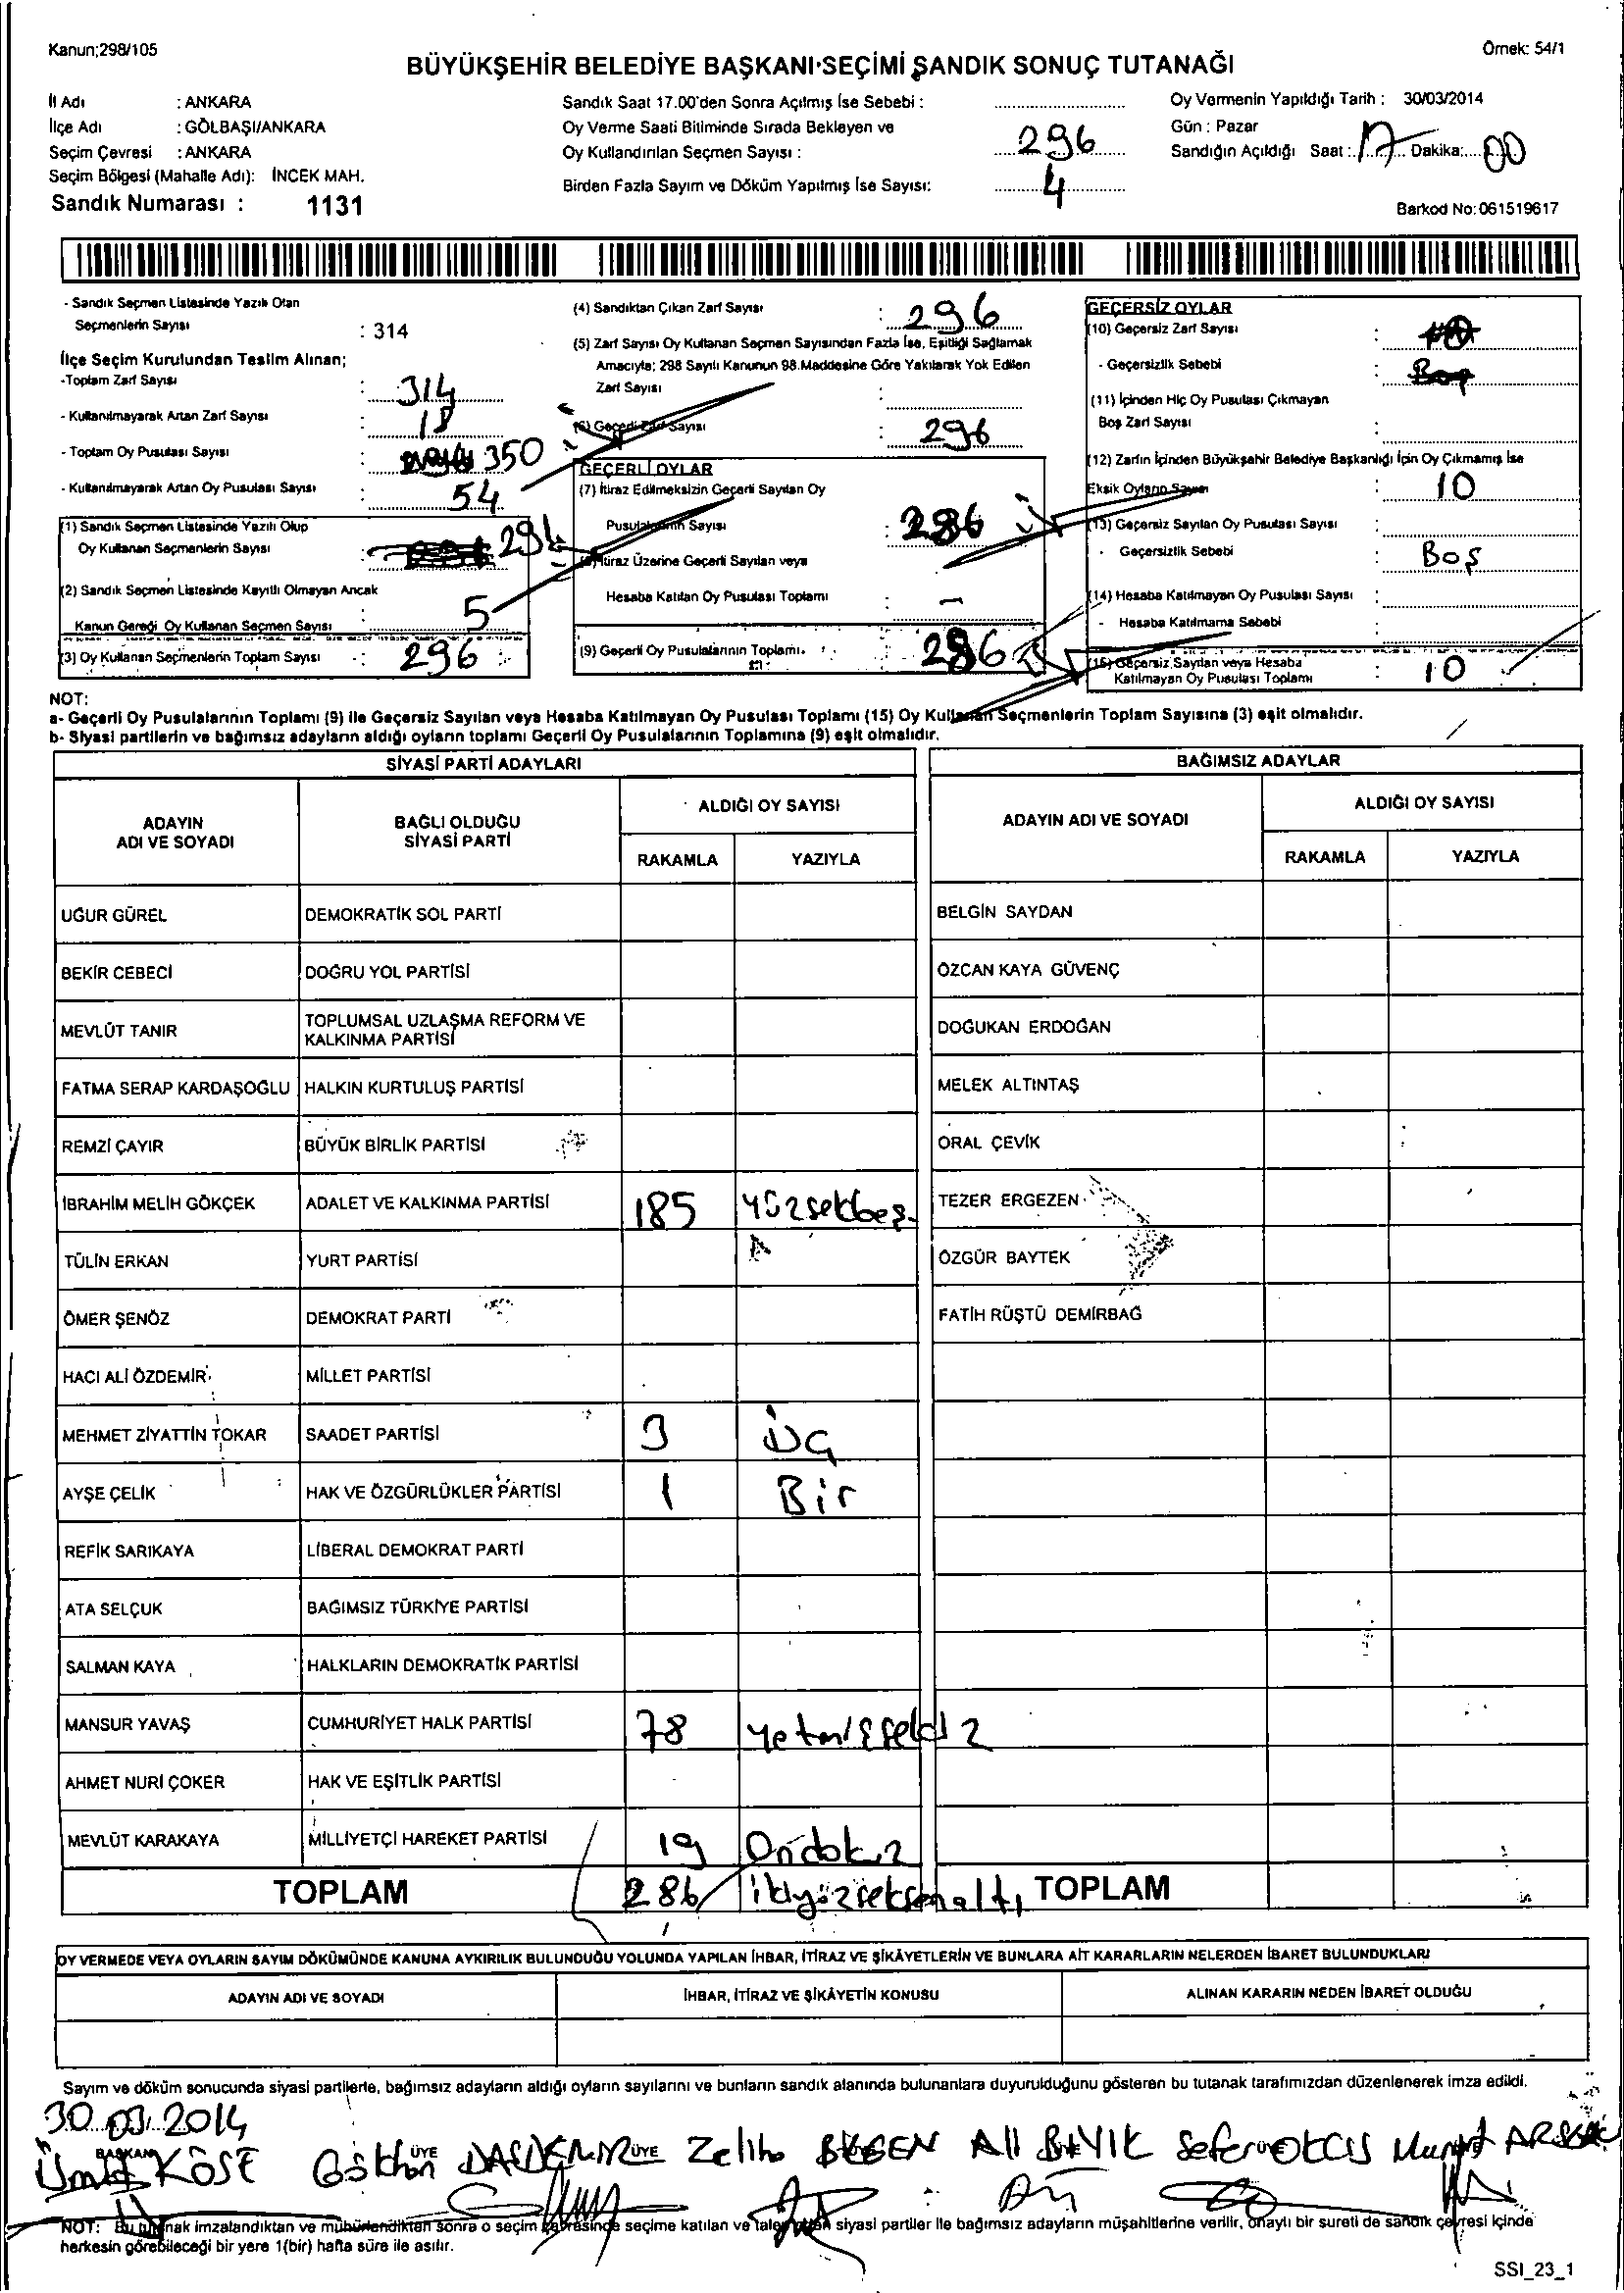 Kanun;298/105
Örnek: 54/1
BÜYÜKŞEHİR BELEDİYE BAŞKANI SEÇİMİ SANDIK SONUÇ TUTANAĞI
İl Adı : ANKARA
İlçe Adı : GÖLBAŞI/ANKARA
Seçim Çevresi : ANKARA
Seçim Bölgesi (Mahalle Adı): İNCEK MAH.
Sandık Numarası : 1131
Sandık Saat 17.00'den Sonra Açılmış İse Sebebi :
Oy Verme Saati Bitiminde Sırada Bekleyen ve
Oy Kullandırılan Seçmen Sayısı : 296
Birden Fazla Sayım ve Döküm Yapılmış İse Sayısı: 4
Oy Vermenin Yapıldığı Tarih : 30/03/2014
Gün : Pazar
Sandığın Açıldığı Saat : 17 Dakika: 00
Barkod No: 061519617
- Sandık Seçmen Listesinde Yazılı Olan
Seçmenlerin Sayısı : 314
İlçe Seçim Kurulundan Teslim Alınan;
-Toplam Zarf Sayısı : 314
- Kullanılmayarak Artan Zarf Sayısı : 18
- Toplam Oy Pusulası Sayısı : 350
- Kullanılmayarak Artan Oy Pusulası Sayısı : 54
(1) Sandık Seçmen Listesinde Yazılı Olup
Oy Kullanan Seçmenlerin Sayısı : 291
(2) Sandık Seçmen Listesinde Kayıtlı Olmayan Ancak
Kanun Gereği Oy Kullanan Seçmen Sayısı : 5
(3) Oy Kullanan Seçmenlerin Toplam Sayısı : 296
(4) Sandıktan Çıkan Zarf Sayısı : 296
(5) Zarf Sayısı Oy Kullanan Seçmen Sayısından Fazla İse, Eşitliği Sağlamak
Amacıyla; 298 Sayılı Kanunun 98.Maddesine Göre Yakılarak Yok Edilen
Zarf Sayısı :
(6) Geçerli Zarf Sayısı : 296
GEÇERLİ OYLAR
(7) İtiraz Edilmeksizin Geçerli Sayılan Oy
Pusulalarının Sayısı : 286
(8) İtiraz Üzerine Geçerli Sayılan veya
Hesaba Katılan Oy Pusulası Toplamı : -
(9) Geçerli Oy Pusulalarının Toplamı : 286
GEÇERSİZ OYLAR
(10) Geçersiz Zarf Sayısı :
- Geçersizlik Sebebi : Boş
(11) İçinden Hiç Oy Pusulası Çıkmayan
Boş Zarf Sayısı :
(12) Zarfın İçinden Büyükşehir Belediye Başkanlığı İçin Oy Çıkmamış İse
Eksik Oyların Sayısı : 10
(13) Geçersiz Sayılan Oy Pusulası Sayısı :
- Geçersizlik Sebebi : Boş
(14) Hesaba Katılmayan Oy Pusulası Sayısı :
- Hesaba Katılmama Sebebi
(15) Geçersiz Sayılan veya Hesaba
Katılmayan Oy Pusulası Toplamı : 10
NOT:
a- Geçerli Oy Pusulalarının Toplamı (9) ile Geçersiz Sayılan veya Hesaba Katılmayan Oy Pusulası Toplamı (15) Oy Kullanan Seçmenlerin Toplam Sayısına (3) eşit olmalıdır.
b- Siyasi partilerin ve bağımsız adayların aldığı oyların toplamı Geçerli Oy Pusulalarının Toplamına (9) eşit olmalıdır.
SİYASİ PARTİ ADAYLARI
ADAYIN ADI VE SOYADI
BAĞLI OLDUĞU SİYASİ PARTİ
ALDIĞI OY SAYISI
RAKAMLA YAZIYLA
UĞUR GÜREL DEMOKRATİK SOL PARTİ
BEKİR CEBECİ DOĞRU YOL PARTİSİ
MEVLÜT TANIR TOPLUMSAL UZLAŞMA REFORM VE KALKINMA PARTİSİ
FATMA SERAP KARDAŞOĞLU HALKIN KURTULUŞ PARTİSİ
REMZİ ÇAYIR BÜYÜK BİRLİK PARTİSİ
İBRAHİM MELİH GÖKÇEK ADALET VE KALKINMA PARTİSİ 185 yüzsekbeş
TÜLİN ERKAN YURT PARTİSİ
ÖMER ŞENÖZ DEMOKRAT PARTİ
HACI ALİ ÖZDEMİR MİLLET PARTİSİ
MEHMET ZİYATTİN TOKAR SAADET PARTİSİ 3 üç
AYŞE ÇELİK HAK VE ÖZGÜRLÜKLER PARTİSİ 1 Bir
REFİK SARIKAYA LİBERAL DEMOKRAT PARTİ
ATA SELÇUK BAĞIMSIZ TÜRKİYE PARTİSİ
SALMAN KAYA HALKLARIN DEMOKRATİK PARTİSİ
MANSUR YAVAŞ CUMHURİYET HALK PARTİSİ 78 yetmişsekiz
AHMET NURİ ÇOKER HAK VE EŞİTLİK PARTİSİ
MEVLÜT KARAKAYA MİLLİYETÇİ HAREKET PARTİSİ 19 Ondokuz
TOPLAM 286 ikiyüzseksenaltı
BAĞIMSIZ ADAYLAR
ADAYIN ADI VE SOYADI
ALDIĞI OY SAYISI
RAKAMLA YAZIYLA
BELGİN SAYDAN
ÖZCAN KAYA GÜVENÇ
DOĞUKAN ERDOĞAN
MELEK ALTINTAŞ
ORAL ÇEVİK
TEZER ERGEZEN
ÖZGÜR BAYTEK
FATİH RÜŞTÜ DEMİRBAĞ
TOPLAM
OY VERMEDE VEYA OYLARIN SAYIM DÖKÜMÜNDE KANUNA AYKIRILIK BULUNDUĞU YOLUNDA YAPILAN İHBAR, İTİRAZ VE ŞİKÂYETLERİN VE BUNLARA AİT KARARLARIN NELERDEN İBARET BULUNDUKLARI
ADAYIN ADI VE SOYADI İHBAR, İTİRAZ VE ŞİKÂYETİN KONUSU ALINAN KARARIN NEDEN İBARET OLDUĞU
Sayım ve döküm sonucunda siyasi partilerle, bağımsız adayların aldığı oyların sayılarını ve bunların sandık alanında bulunanlara duyurulduğunu gösteren bu tutanak tarafımızdan düzenlenerek imza edildi.
30.03.2014
BAŞKAN ÜYE ÜYE ÜYE
Ümit KÖSE Gökhan Zeliha Ali BIYIK Sefer Murat
NOT: Bu tutanak imzalandıktan ve mühürlendikten sonra o seçim çevresinde seçime katılan ve talep eden siyasi partiler ile bağımsız adayların müşahitlerine verilir, onaylı bir sureti de sandık çevresi içinde
herkesin görebileceği bir yere 1(bir) hafta süre ile asılır.
SSI_23_1